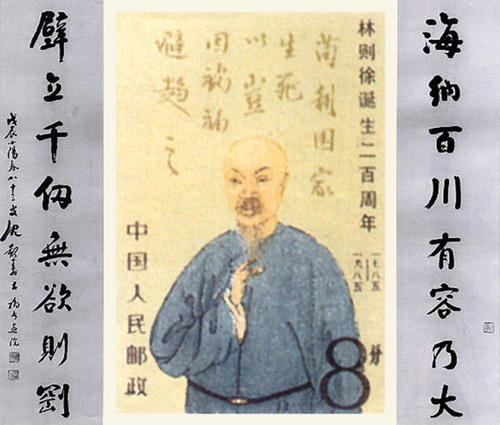 海納百川有容乃大
林则徐诞生二百周年
一七八五
一九八五
苟利国家
生死
以豈
因禍福
避趨之
中国人民邮政
8分
壁立千仞無欲則剛